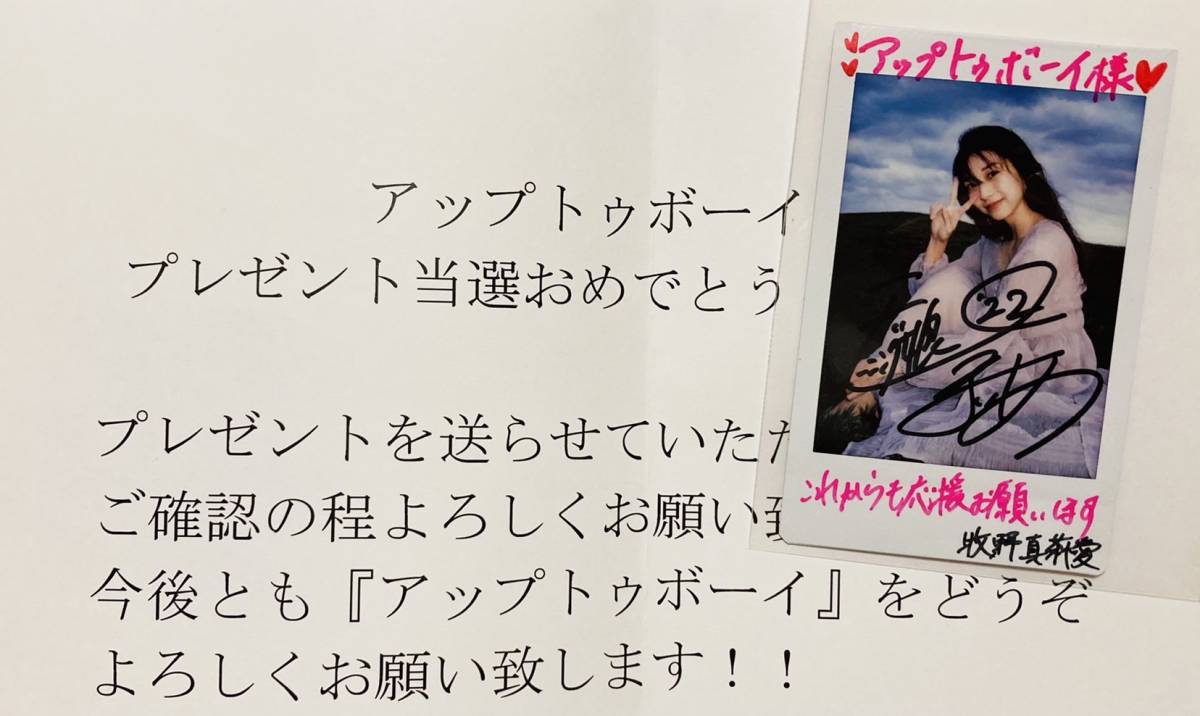 アップトゥボーイ
プレゼント当選おめでとう
プレゼントを送らせていただ
ご確認の程よろしくお願い致
今後とも『アップトゥボーイ』をどうぞ
よろしくお願い致します！！
アップトゥボーイ様
'22
これからも応援お願いします
牧野真莉愛